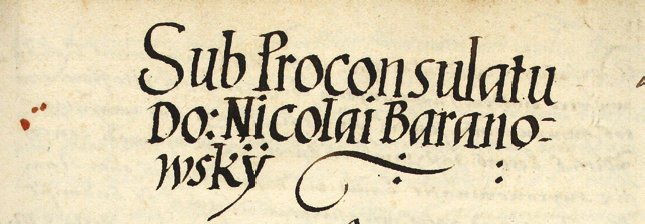 Sub Proconsulatu
Do: Nicolai Barano=
wskÿ